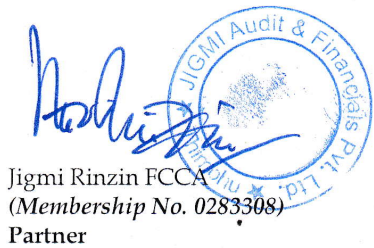 JIGMI Audit & Financials Pvt. Ltd.
Thimphu
Jigmi Rinzin FCCA
(Membership No. 0283308)
Partner